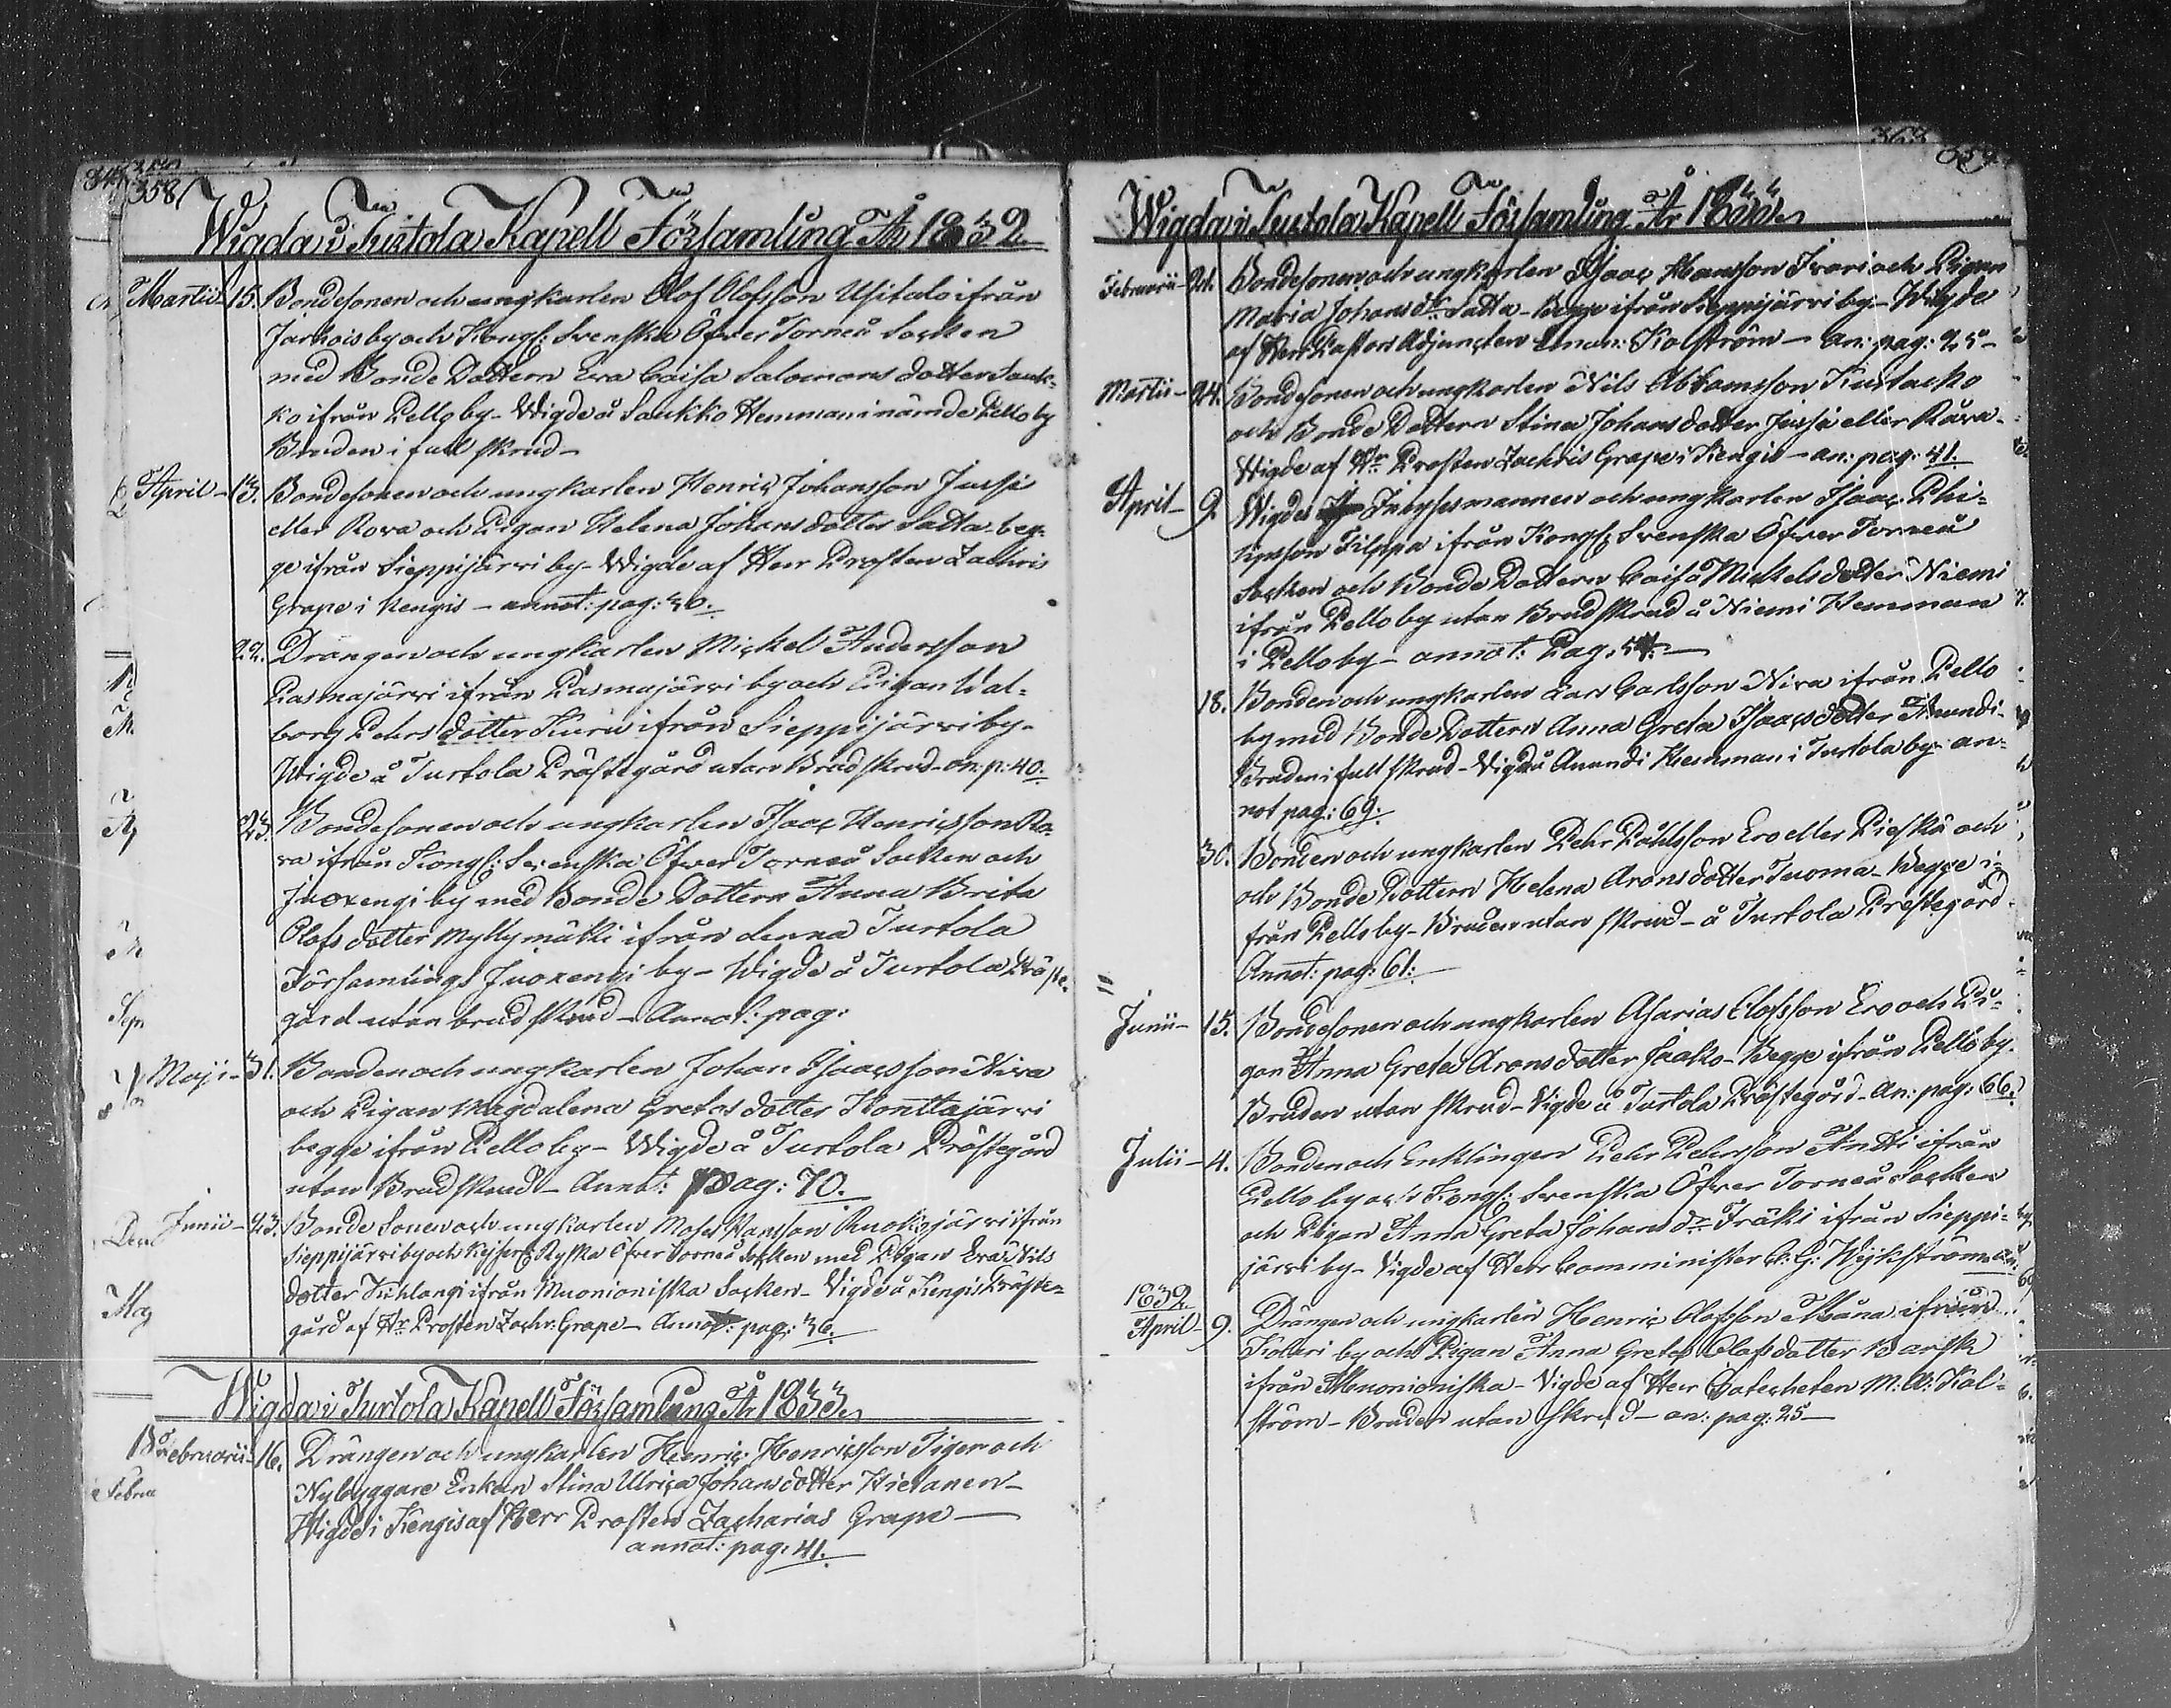 358
Wigda i Turtola Kapell Församling År 1832
Martii 15. Bondesonen och ungkarlen Olof Olofsson Ylitalo ifrån
Jarhois by och Kongl: Svenska Öfver Torneå Socken
med Bonde Dottern Eva Caisa Salomons dotter Sauk-
ko ifrån Pello by - Wigde å Saukko Hemman i nämde Pello by
Bruden i full skrud -
April - 13. Bondesonen och ungkarlen Henric Johansson Jussi
eller Rova och Pigan Helena Johans dotter Satta - beg-
ge ifrån Sieppijärvi by - Wigde af Herr Prosten Zachris
Grape i Kengis - annot: pag: 40.
22. Drängen och ungkarlen Mickel Andersson
Pasmajärvi ifrån Pasmajärvi by och Pigan Wal-
borg Pehrs dotter Kuru ifrån Sieppijärvi by -
Wigde å Turtola Prästegård utan Brudskrud - an: p: 40.
23. Bondesonen och ungkarlen Isaac Henricsson Ro-
va ifrån Kongl: Svenska Öfver Torneå Socken och
Juoxengi by med Bonde Dottern Anna Brita
Olofs dotter Myllymäki ifrån denna Turtola
Församlings Juoxengi by - Wigde å Turtola Präste-
gård utan brudskrud - Annot: pag:
Maji - 31. Bonden och ungkarlen Johan Isaacsson Niva
och Pigan Magdalena Gretas dotter Konttajärvi
begge ifrån Pello by - Wigde å Turtola Prästegård
utan Brudskrud - Annot: pag: 70.
Junii - 23. Bonde Sonen och ungkarlen Moses Hansson Ruokojärvi ifrån
Sieppijärvi by och Kejserl: Ryska Öfver Torneå Socken med Pigan Eva Nils
dotter Kuhlangi ifrån Muonioniska Socken - Vigde å Kengis Präste-
gård af Hr Prosten Zachr: Grape - Annot: pag: 36.
Wigda i Turtola Kapell Församling År 1833
Februarii - 16. Drängen och ungkarlen Henric Henricsson Tiger och
Nybyggare Enkan Stina Ulrica Johans dotter Hietanen -
Wigde i Kengis af Herr Prosten Zacharias Grape -
annot: pag: 41.
363
359
Wigda i Turtola Kapell Församling År 1833
Februarii - 21. Bondesonen och ungkarlen Isaac Hansson Ivari och Pigan
Maria Johans dr Satta - Begge ifrån Sieppijärvi by - Wigde
af Herr Pastors Adjuncten Eman: Kolström - an: pag: 25 -
Martii - 24. Bondesonen och ungkarlen Nils Abramsson Kurtacko
och Bonde Dottern Stina Johans dotter Jussi eller Råva -
Wigde af Hr Prosten Zachris Grape i Kengis - an: pag: 41.
April - 9. Wigdes Inhysesmannen och ungkarlen Isaac Phi-
lipsson Filppa ifrån Kongl: Svenska Öfver Torneå
Socken och Bonde Dottern Caisa Mickels dotter Niemi
ifrån Pello by utan Brudskrud å Niemi Hemman
i Pello by - annot: Pag: 54. -
18. Bonden och ungkarlen Lars Carlsson Niva ifrån Pello
by med Bonde Dottern Anna Greta Isaacs dotter Anundi -
Bruden i full skrud - Vigde å Anundi Hemman i Turtola by - an-
not pag: 69.
30. Bonden och ungkarlen Pehr Påhlsson Ero eller Pieskä och
och Bonde Dottern Helena Arons dotter Tuoma - Begge i-
från Pello by - Bruden utan skrud - å Turtola Prestegård -
Annot: pag: 61:
Junii - 15. Bondesonen och ungkarlen Asarias Olofsson Ero och Pi-
gan Anna Greta Arons dotter Jaako - Begge ifrån Pello by -
Bruden utan skrud - Vigde å Turtola Prästegård - an: pag: 66.
Julii - 4. Bonden och Enklingen Pehr Pehrsson Antti ifrån
Pello by och Kongl: Svenska Öfver Torneå Socken
och Pigan Anna Greta Johans dr Fräki ifrån Sieppi-
järvi by - Vigde af Herr Comminister C: G: Wejkström - an:
1832
April - 9. Drängen och ungkarlen Henric Olofsson Mäna ifrån
Kolari by och Pigan Anna Greta Olofs dotter Barsk
ifrån Muonioniska - Vigde af Herr Catecheten M: W: Kol-
ström - Bruden utan skrud - an: pag: 25 -